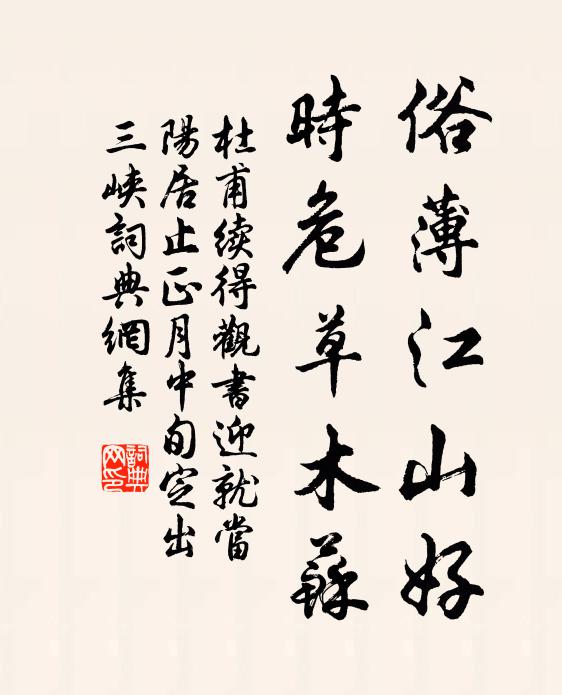 俗薄江山好
時危草木蘇
杜甫續得觀書迎就當
陽居止正月中旬定出
三峽詞典網集
詞典
网印